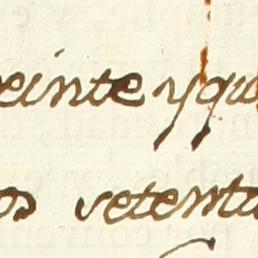 einte y qu
os setenta